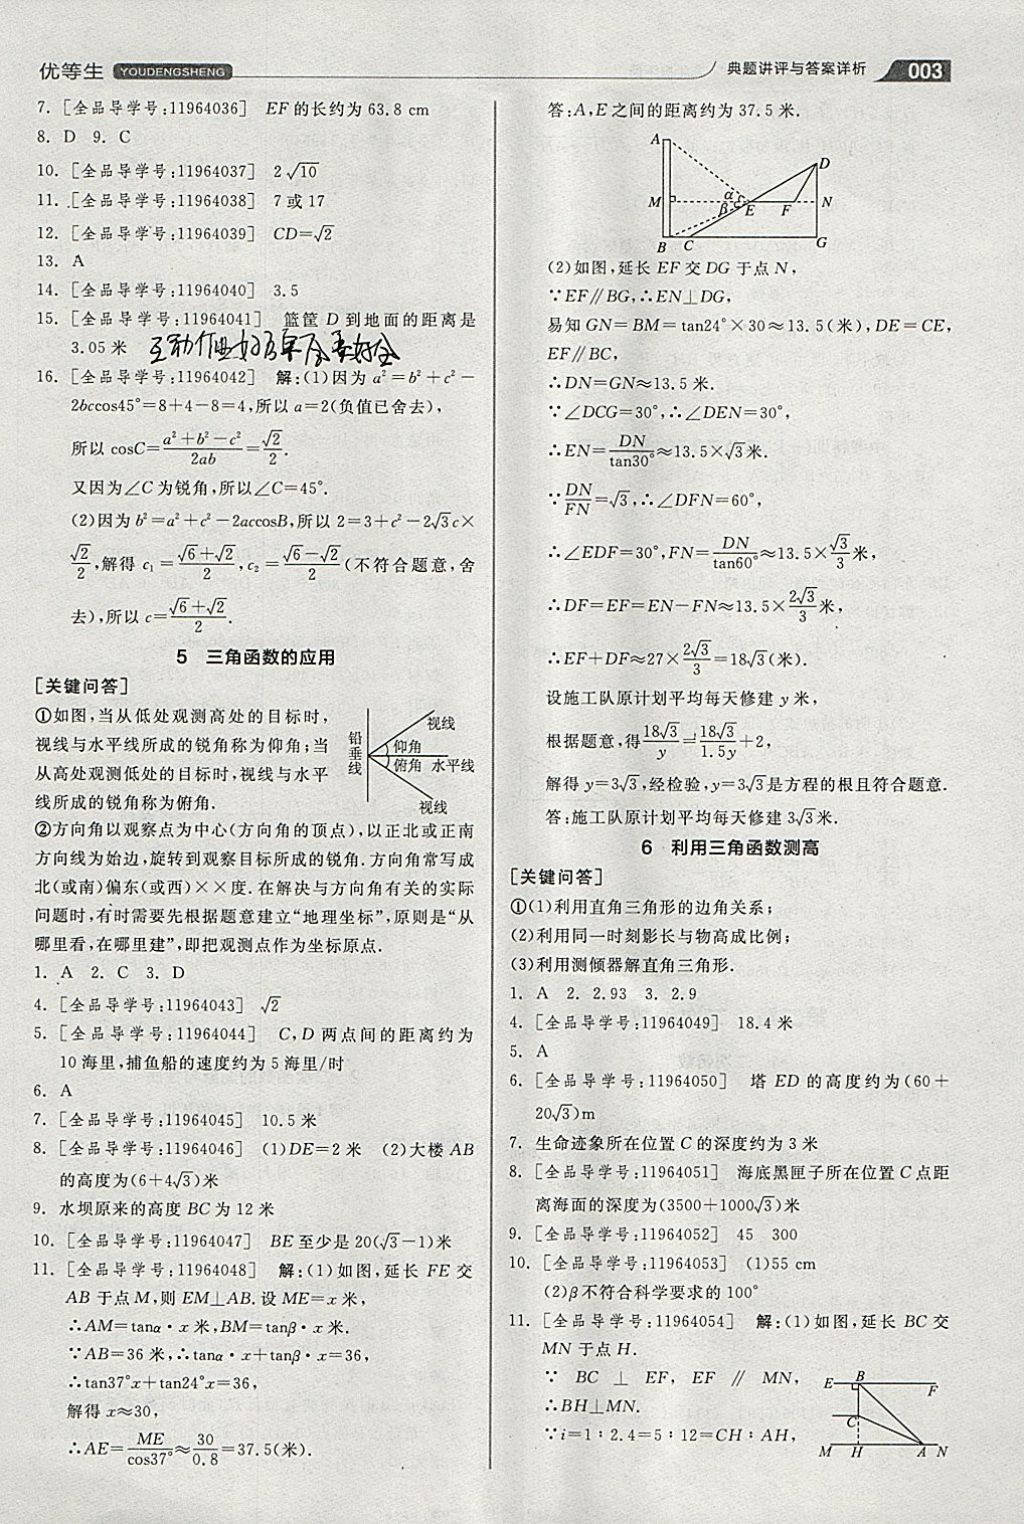 优等生 YOUDENGSHENG
典题讲评与答案详析 003
7. [全品导学号:11964036] EF的长约为63.8 cm
8. D 9. C
10. [全品导学号:11964037] 2√10
11. [全品导学号:11964038] 7或17
12. [全品导学号:11964039] CD=√2
13. A
14. [全品导学号:11964040] 3.5
15. [全品导学号:11964041] 篮筐D到地面的距离是
3.05米
16. [全品导学号:11964042] 解:(1)因为a²=b²+c²−
2bccos45°=8+4−8=4,所以a=2(负值已舍去),
所以cosC=(a²+b²−c²)/2ab=√2/2.
又因为∠C为锐角,所以∠C=45°.
(2)因为b²=a²+c²−2accosB,所以2=3+c²−2√3c×
√2/2,解得c₁=(√6+√2)/2,c₂=(√6−√2)/2(不符合题意,舍
去),所以c=(√6+√2)/2.
5 三角函数的应用
[关键问答]
①如图,当从低处观测高处的目标时,
视线与水平线所成的锐角称为仰角;当
从高处观测低处的目标时,视线与水平
线所成的锐角称为俯角.
铅垂线
视线
仰角
俯角 水平线
视线
②方向角以观察点为中心(方向角的顶点),以正北或正南
方向线为始边,旋转到观察目标所成的锐角.方向角常写成
北(或南)偏东(或西)××度.在解决与方向角有关的实际
问题时,有时需要先根据题意建立“地理坐标”,原则是“从
哪里看,在哪里建”,即把观测点作为坐标原点.
1. A 2. C 3. D
4. [全品导学号:11964043] √2
5. [全品导学号:11964044] C,D两点间的距离约为
10海里,捕鱼船的速度约为5海里/时
6. A
7. [全品导学号:11964045] 10.5米
8. [全品导学号:11964046] (1)DE=2米 (2)大楼AB
的高度为(6+4√3)米
9. 水坝原来的高度BC为12米
10. [全品导学号:11964047] BE至少是20(√3−1)米
11. [全品导学号:11964048] 解:(1)如图,延长FE交
AB于点M,则EM⊥AB.设ME=x米,
∴AM=tanα·x米,BM=tanβ·x米.
∵AB=36米,∴tanα·x+tanβ·x=36,
∴tan37°x+tan24°x=36,
解得x≈30,
∴AE=ME/cos37°≈30/0.8=37.5(米).
答:A,E之间的距离约为37.5米.
A
D
α
M β E F N
B C G
(2)如图,延长EF交DG于点N,
∵EF∥BG,∴EN⊥DG,
易知GN=BM=tan24°×30≈13.5(米),DE=CE,
EF∥BC,
∴DN=GN≈13.5米.
∵∠DCG=30°,∴∠DEN=30°,
∴EN=DN/tan30°≈13.5×√3米.
∵DN/FN=√3,∴∠DFN=60°,
∴∠EDF=30°,FN=DN/tan60°≈13.5×√3/3米,
∴DF=EF=EN−FN≈13.5×2√3/3米,
∴EF+DF≈27×2√3/3=18√3(米).
设施工队原计划平均每天修建y米,
根据题意,得18√3/y=18√3/1.5y+2,
解得y=3√3,经检验,y=3√3是方程的根且符合题意.
答:施工队原计划平均每天修建3√3米.
6 利用三角函数测高
[关键问答]
①(1)利用直角三角形的边角关系;
(2)利用同一时刻影长与物高成比例;
(3)利用测倾器解直角三角形.
1. A 2. 2.93 3. 2.9
4. [全品导学号:11964049] 18.4米
5. A
6. [全品导学号:11964050] 塔ED的高度约为(60+
20√3)m
7. 生命迹象所在位置C的深度约为3米
8. [全品导学号:11964051] 海底黑匣子所在位置C点距
离海面的深度为(3500+1000√3)米
9. [全品导学号:11964052] 45 300
10. [全品导学号:11964053] (1)55 cm
(2)β不符合科学要求的100°
11. [全品导学号:11964054] 解:(1)如图,延长BC交
MN于点H.
∵BC⊥EF,EF∥MN,
∴BH⊥MN.
∵i=1∶2.4=5∶12=CH∶AH,
E B F
C
M H A N